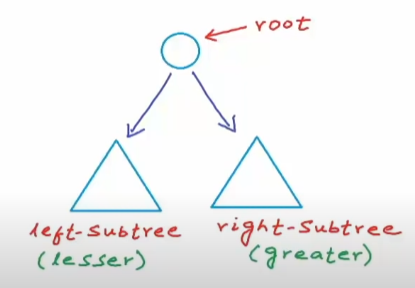 root
left-subtree
(lesser)
right-subtree
(greater)